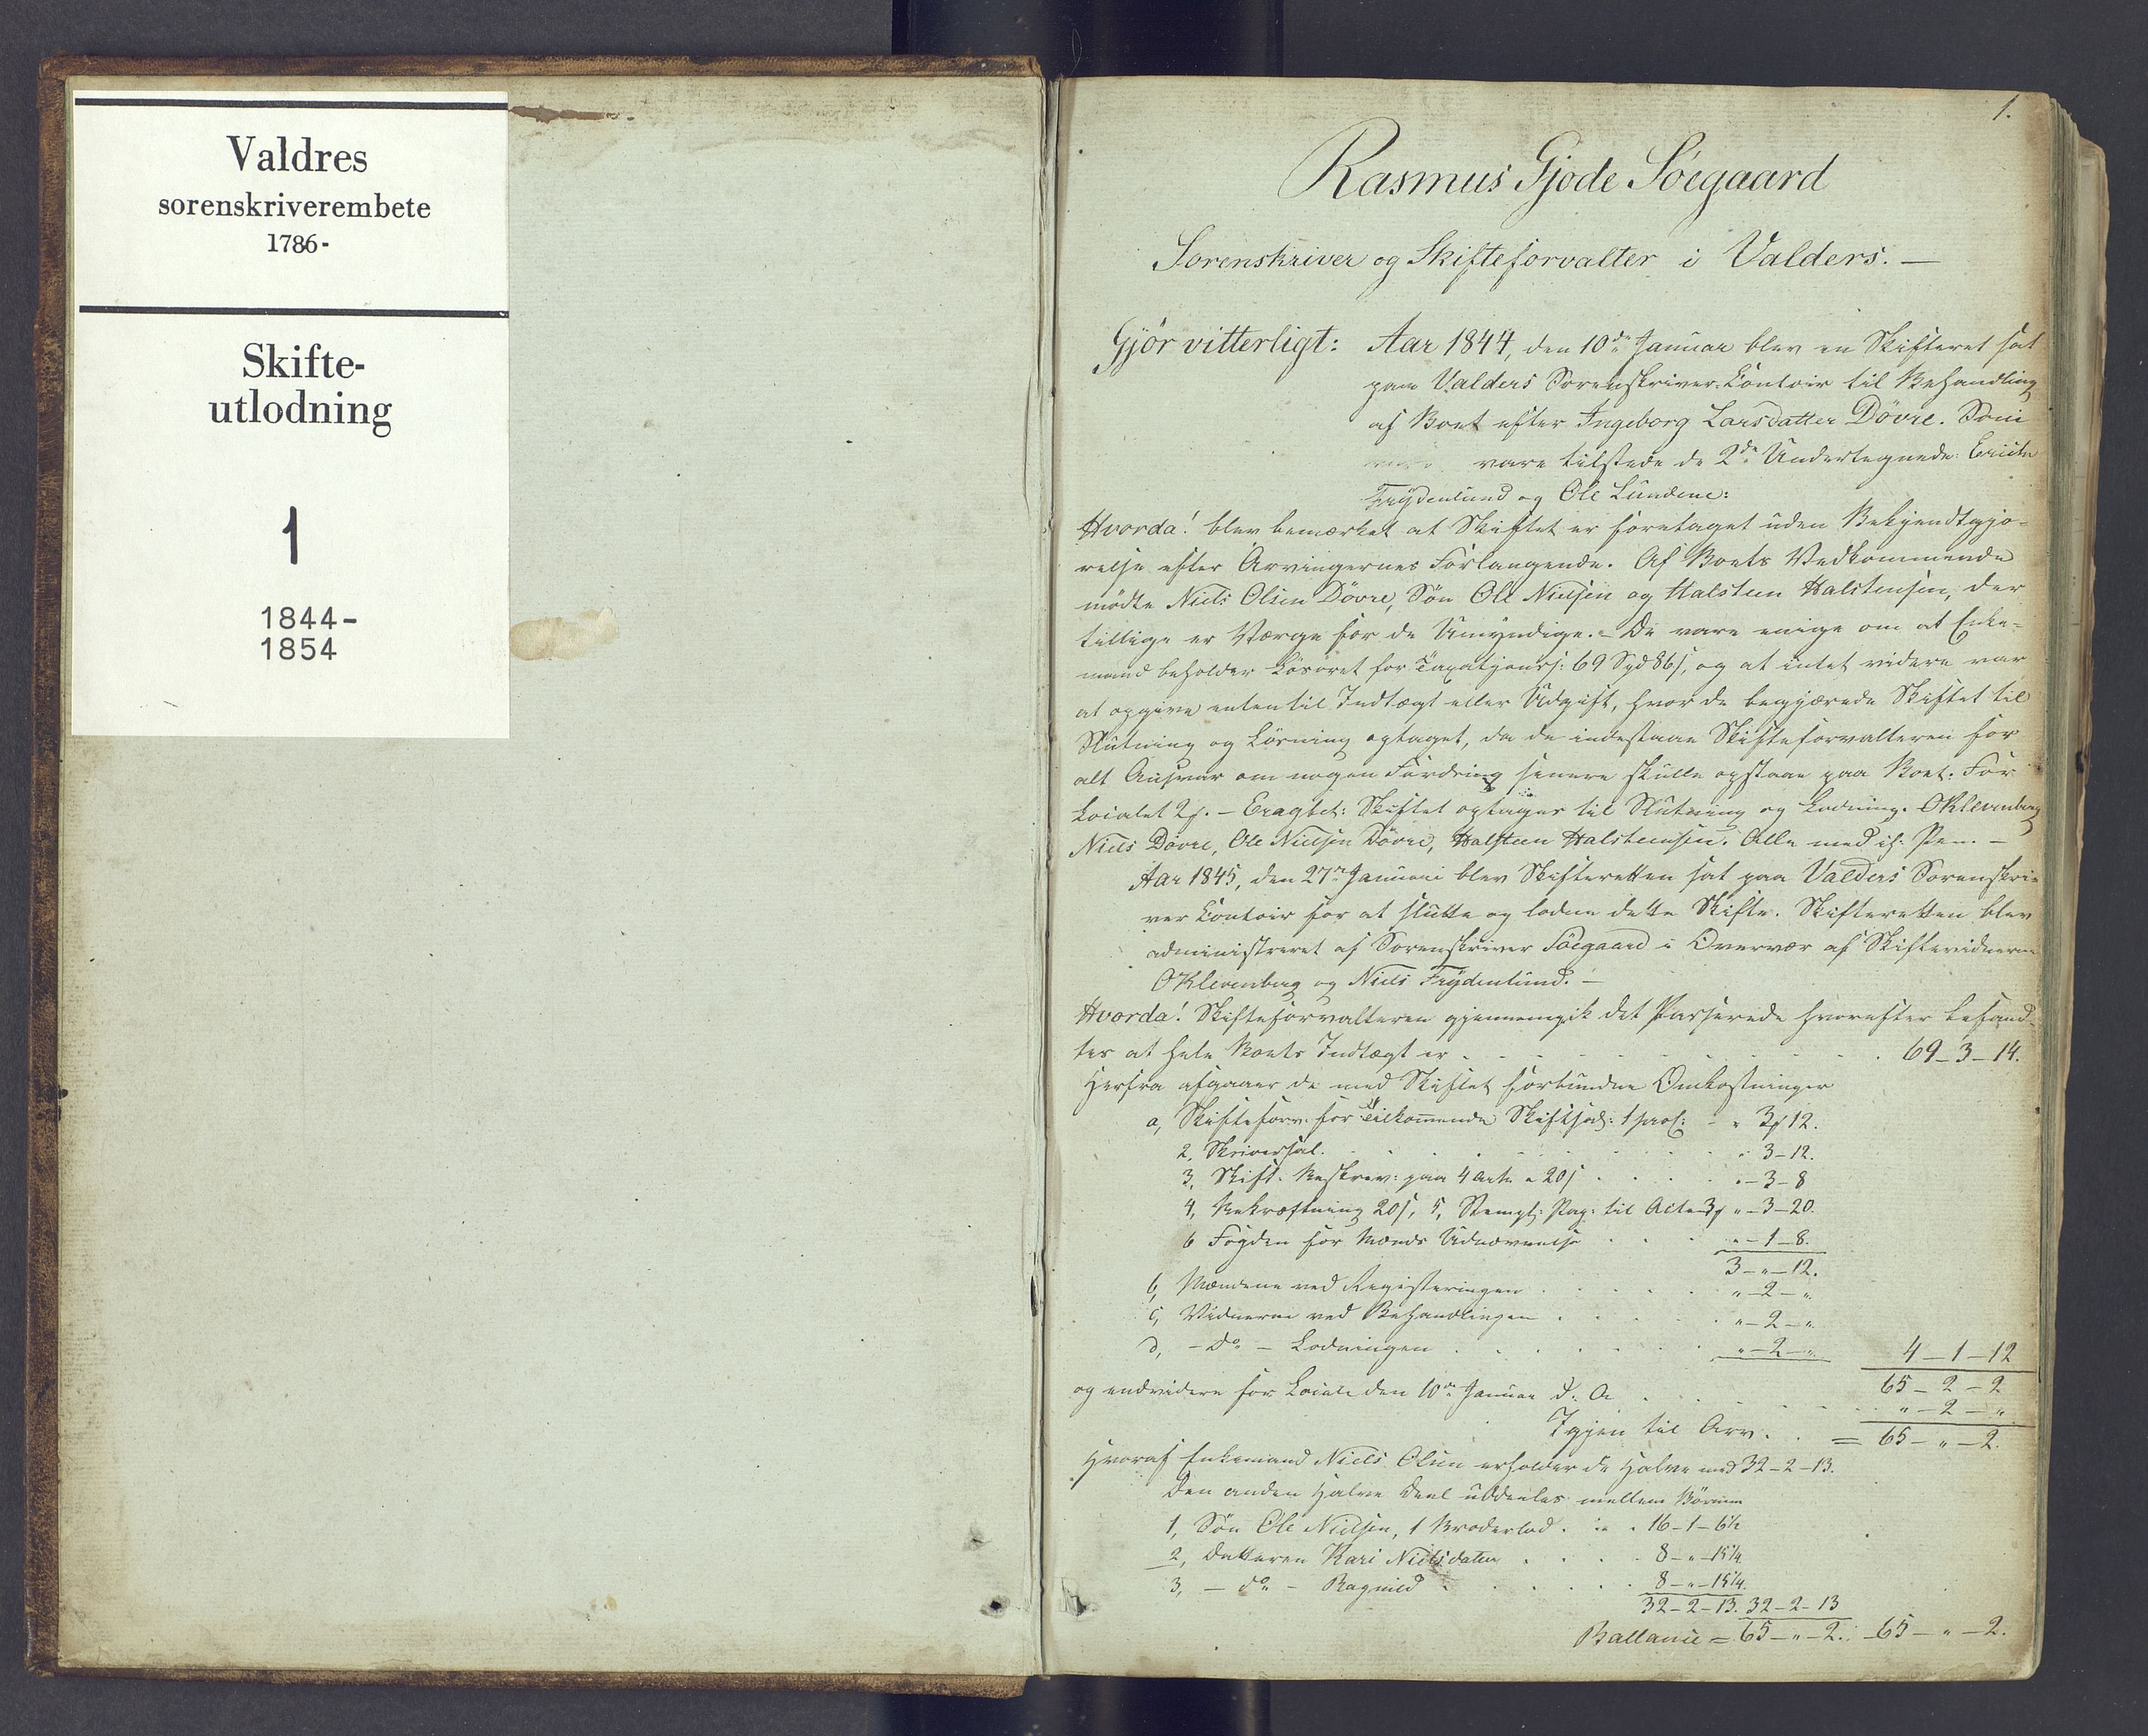 Valdres
sorenskriverembete
1786-
Skifte-
utlodning
1
1844-
1854
1.
Rasmus Gjöde Söegaard
Sorenskriver og Skifteforvalter i Valders. —
Gjör vitterligt: Aar 1844, den 10de Januar blev en Skifteret sat
paa Valders Sorenskriver-Contoir til Behandling
af Boet efter Ingeborg Larsdatter Dövre. Som
vare tilstede de 2de Undertegnede:
Frydenlund og Ole Lundene:
Hvorda! blev bemærket at Skiftet er foretaget uden Bekjendtgjö-
relse efter Arvingernes Forlangende. Af Boets Vedkommende
mödte Niels Olsen Dövre, Sön Ole Nielsen og Halsteen Halstensen, der
tillige er Værge for de Umyndige. – De vare enige om at Enke-
mand beholder Lösöret for Taxatjons: 69 Spd 86 s, og at intet videre var
at opgive enten til Indtægt eller Udgift, hvor de begjærede Skiftet til
Slutning og Lösning optaget, da de indestaae Skifteforvalteren for
alt Ansvar om nogen Fordring senere skulle opstaae paa Boet. For
Localet 2 s. – Eragtet: Skiftet optages til Slutning og Lodning. OKlevenberg
Niels Dövre, Ole Nielsen Dövre, Halsteen Halsteensen. Alle med ih: Pen. –
Aar 1845, den 27de Januari blev Skifteretten sat paa Valders Sorenskri-
ver Contoir for at slutte og lodne dette Skifte. Skifteretten blev
administreret af Sorenskriver Söegaard i Overvær af Skiftevidnerne
OKlevenberg og Niels Frydenlund. –
Hvorda! Skifteforvalteren gjennemgik det Passerede hvorefter befand-
tes at hele Boets Indtægt er . . . 69-3-14.
Herfra afgaaer de med Skiftet forbundne Omkostninger
a, Skifteforv: for Tilkommende 1 proc: " 3 12.
2, Skriversal. . . . " 3-12.
3, Skift: Beskrev: paa 4 Ark a 20 s . . . "-3-8
4, Bekræftning 20 s, 5, Stempl: Pap: til Acten 3 "-3-20.
6 Fogden for Mænds Udnævnelse . . . "-1-8.
3-"-12.
b, Mændene ved Registeringen . . . "-2-".
c, Vidnerne ved Behandlingen . . . "-2-".
d, - do - Lodningen . . . "-2-". 4-1-12
65-2-2
og endvidere for Locale den 10de Januar d: A . . . "-2-".
Igjen til Arv. . = 65-"-2.
Hvoraf Enkemand Niels Olsen erholder de Halve med 32-2-13.
Den anden Halve Deel uddeeles mellem Börnene
1, Sön Ole Nielsen, 1 Broderlod . . . 16-1-6½
2, Datteren Kari Nielsdatter . . . 8-"-15¼
3, - do - Ragnild . . . 8-"-15¼.
32-2-13. 32-2-13
Ballance = 65-"-2. 65-"-2.